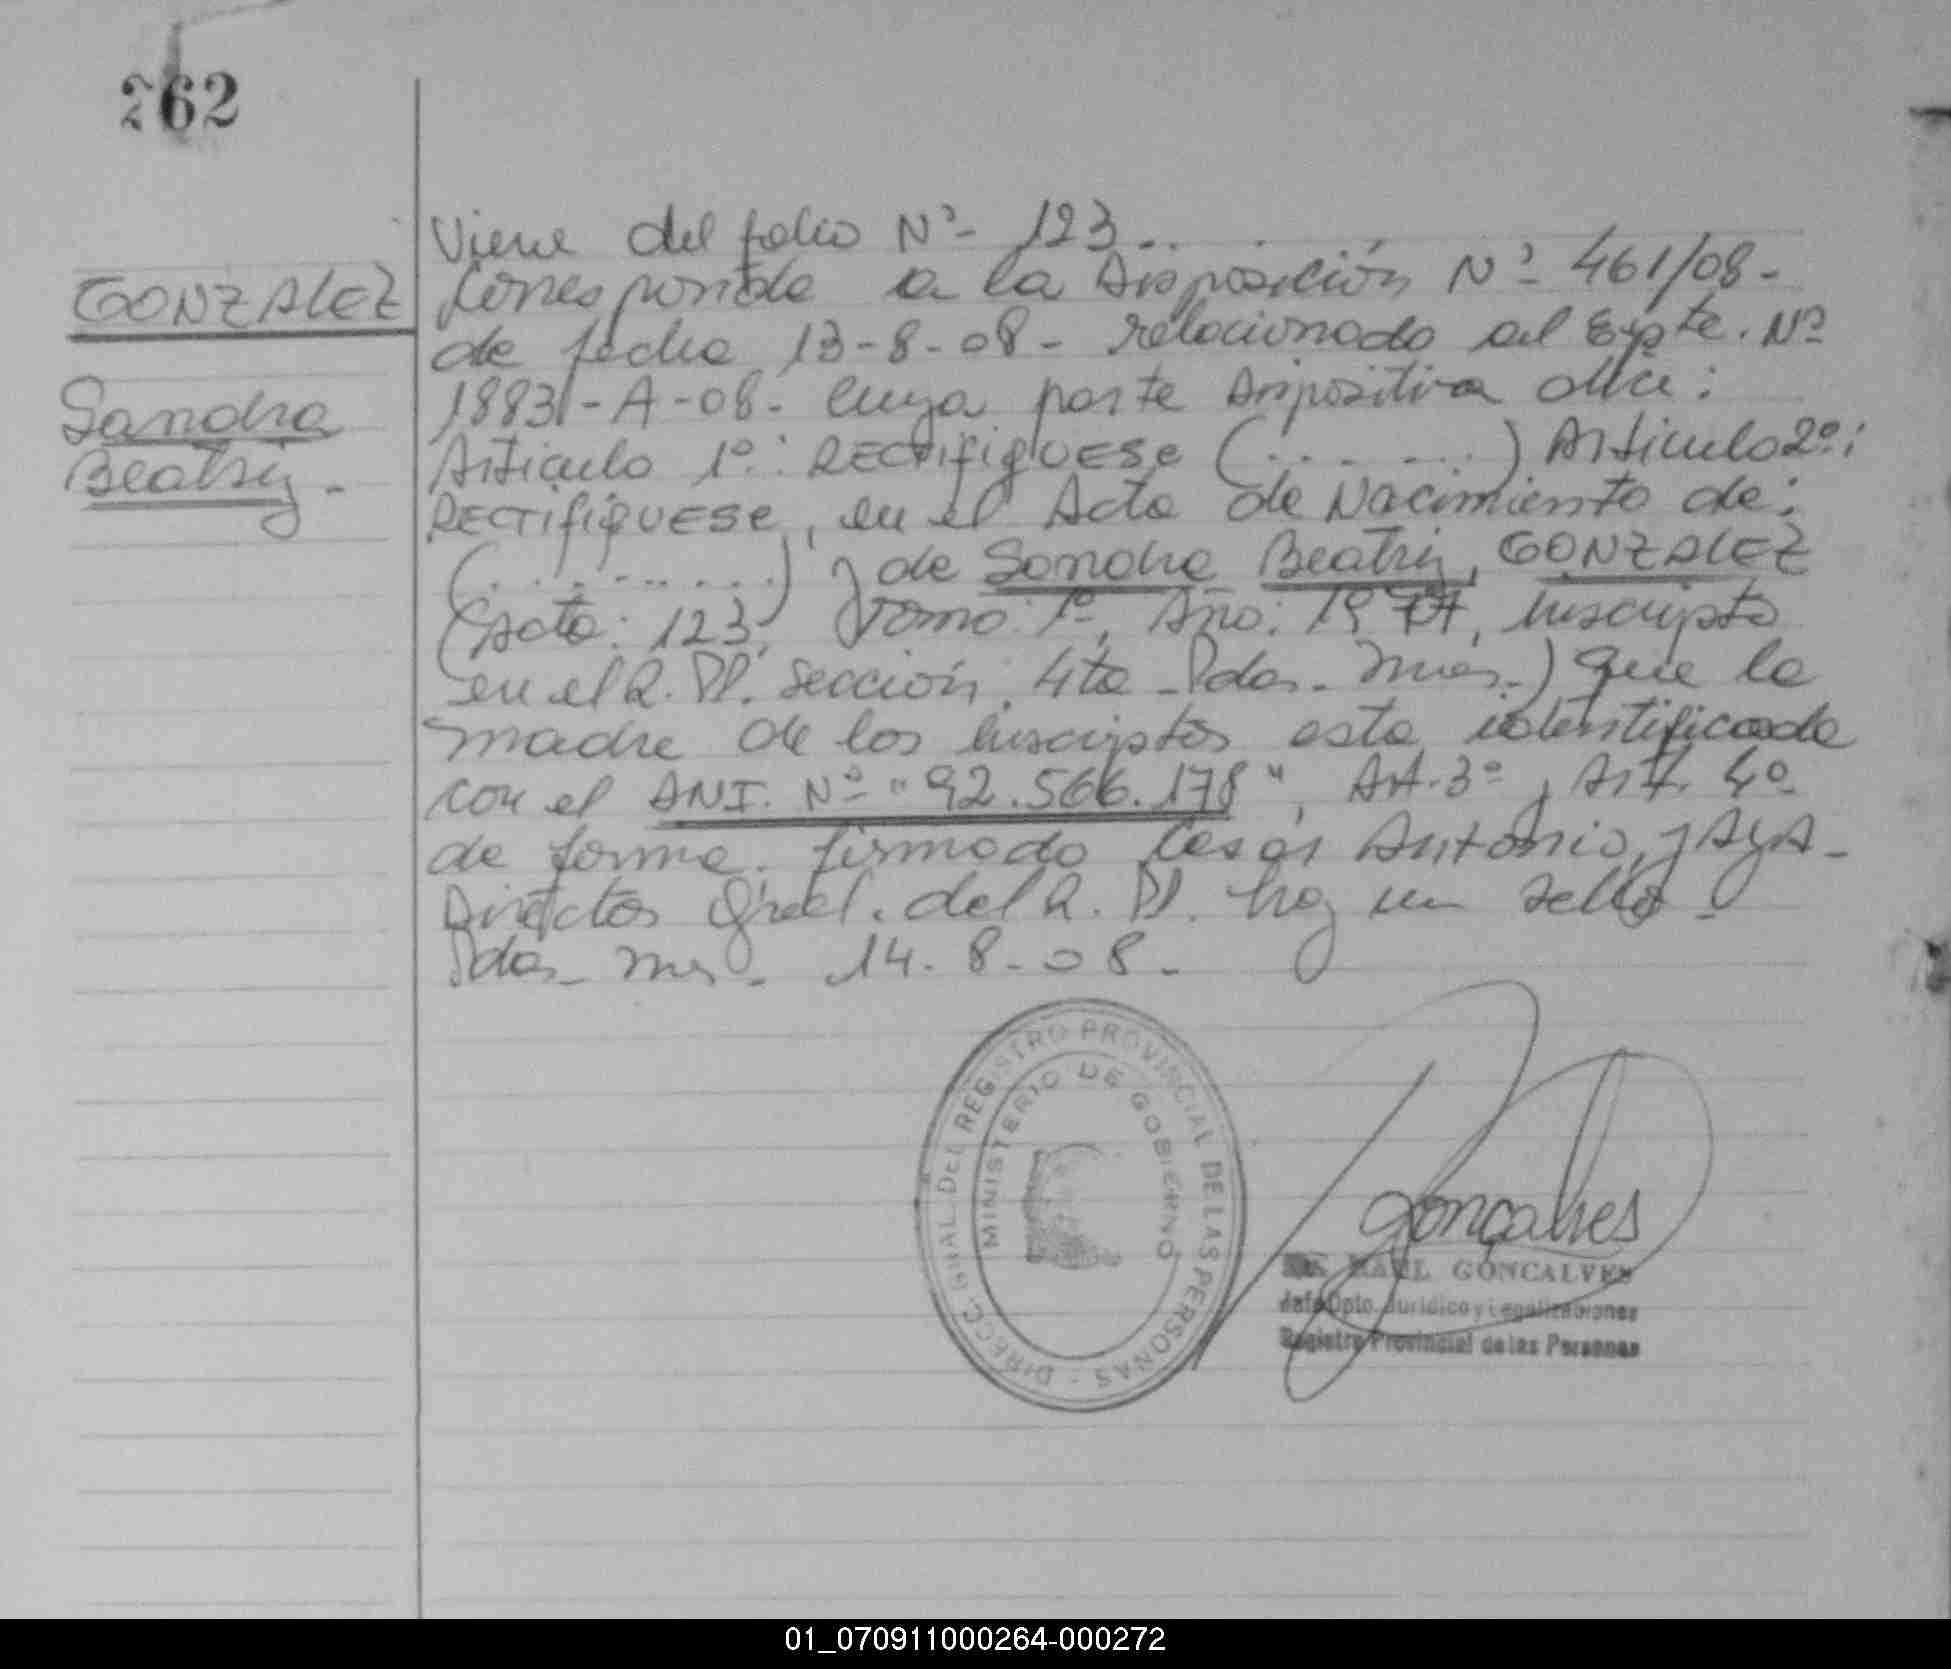 262
GONZALEZ
Sandra
Beatriz.
Viene del folio Nº- 123..
Corresponde a la Disposición Nº- 461/08-
de fecha 13-8-08- relacionado al Expte. Nº
1883-A-08- cuya parte dispositiva dice:
Articulo 1º: RECTIFIQUESE (.......) Articulo 2º:
RECTIFIQUESE, en el Acta de Nacimiento de:
(..........) y de Sandra Beatriz, GONZALEZ
(Acta: 123, Tomo: 1º, Año: 1977, Inscripta
en el R.PP. Sección 4ta - Pdas. Mnes.) que la
madre de los inscriptos esta identificada
con el DNI. Nº- "92.566.178", Art. 3º y Art. 4º
de forma. firmado Cesar Antonio, AyA-
Director Gral. del R.PP. hay un sello-
Pdas- Mns. 14-8-08-
DIRECC. GRAL. DEL REGISTRO PROVINCIAL DE LAS PERSONAS -
MINISTERIO DE GOBIERNO
Gonçalves
RAUL GONCALVES
Jefe Dpto. Juridico y Legalizaciones
Registro Provincial de las Personas
01_070911000264-000272